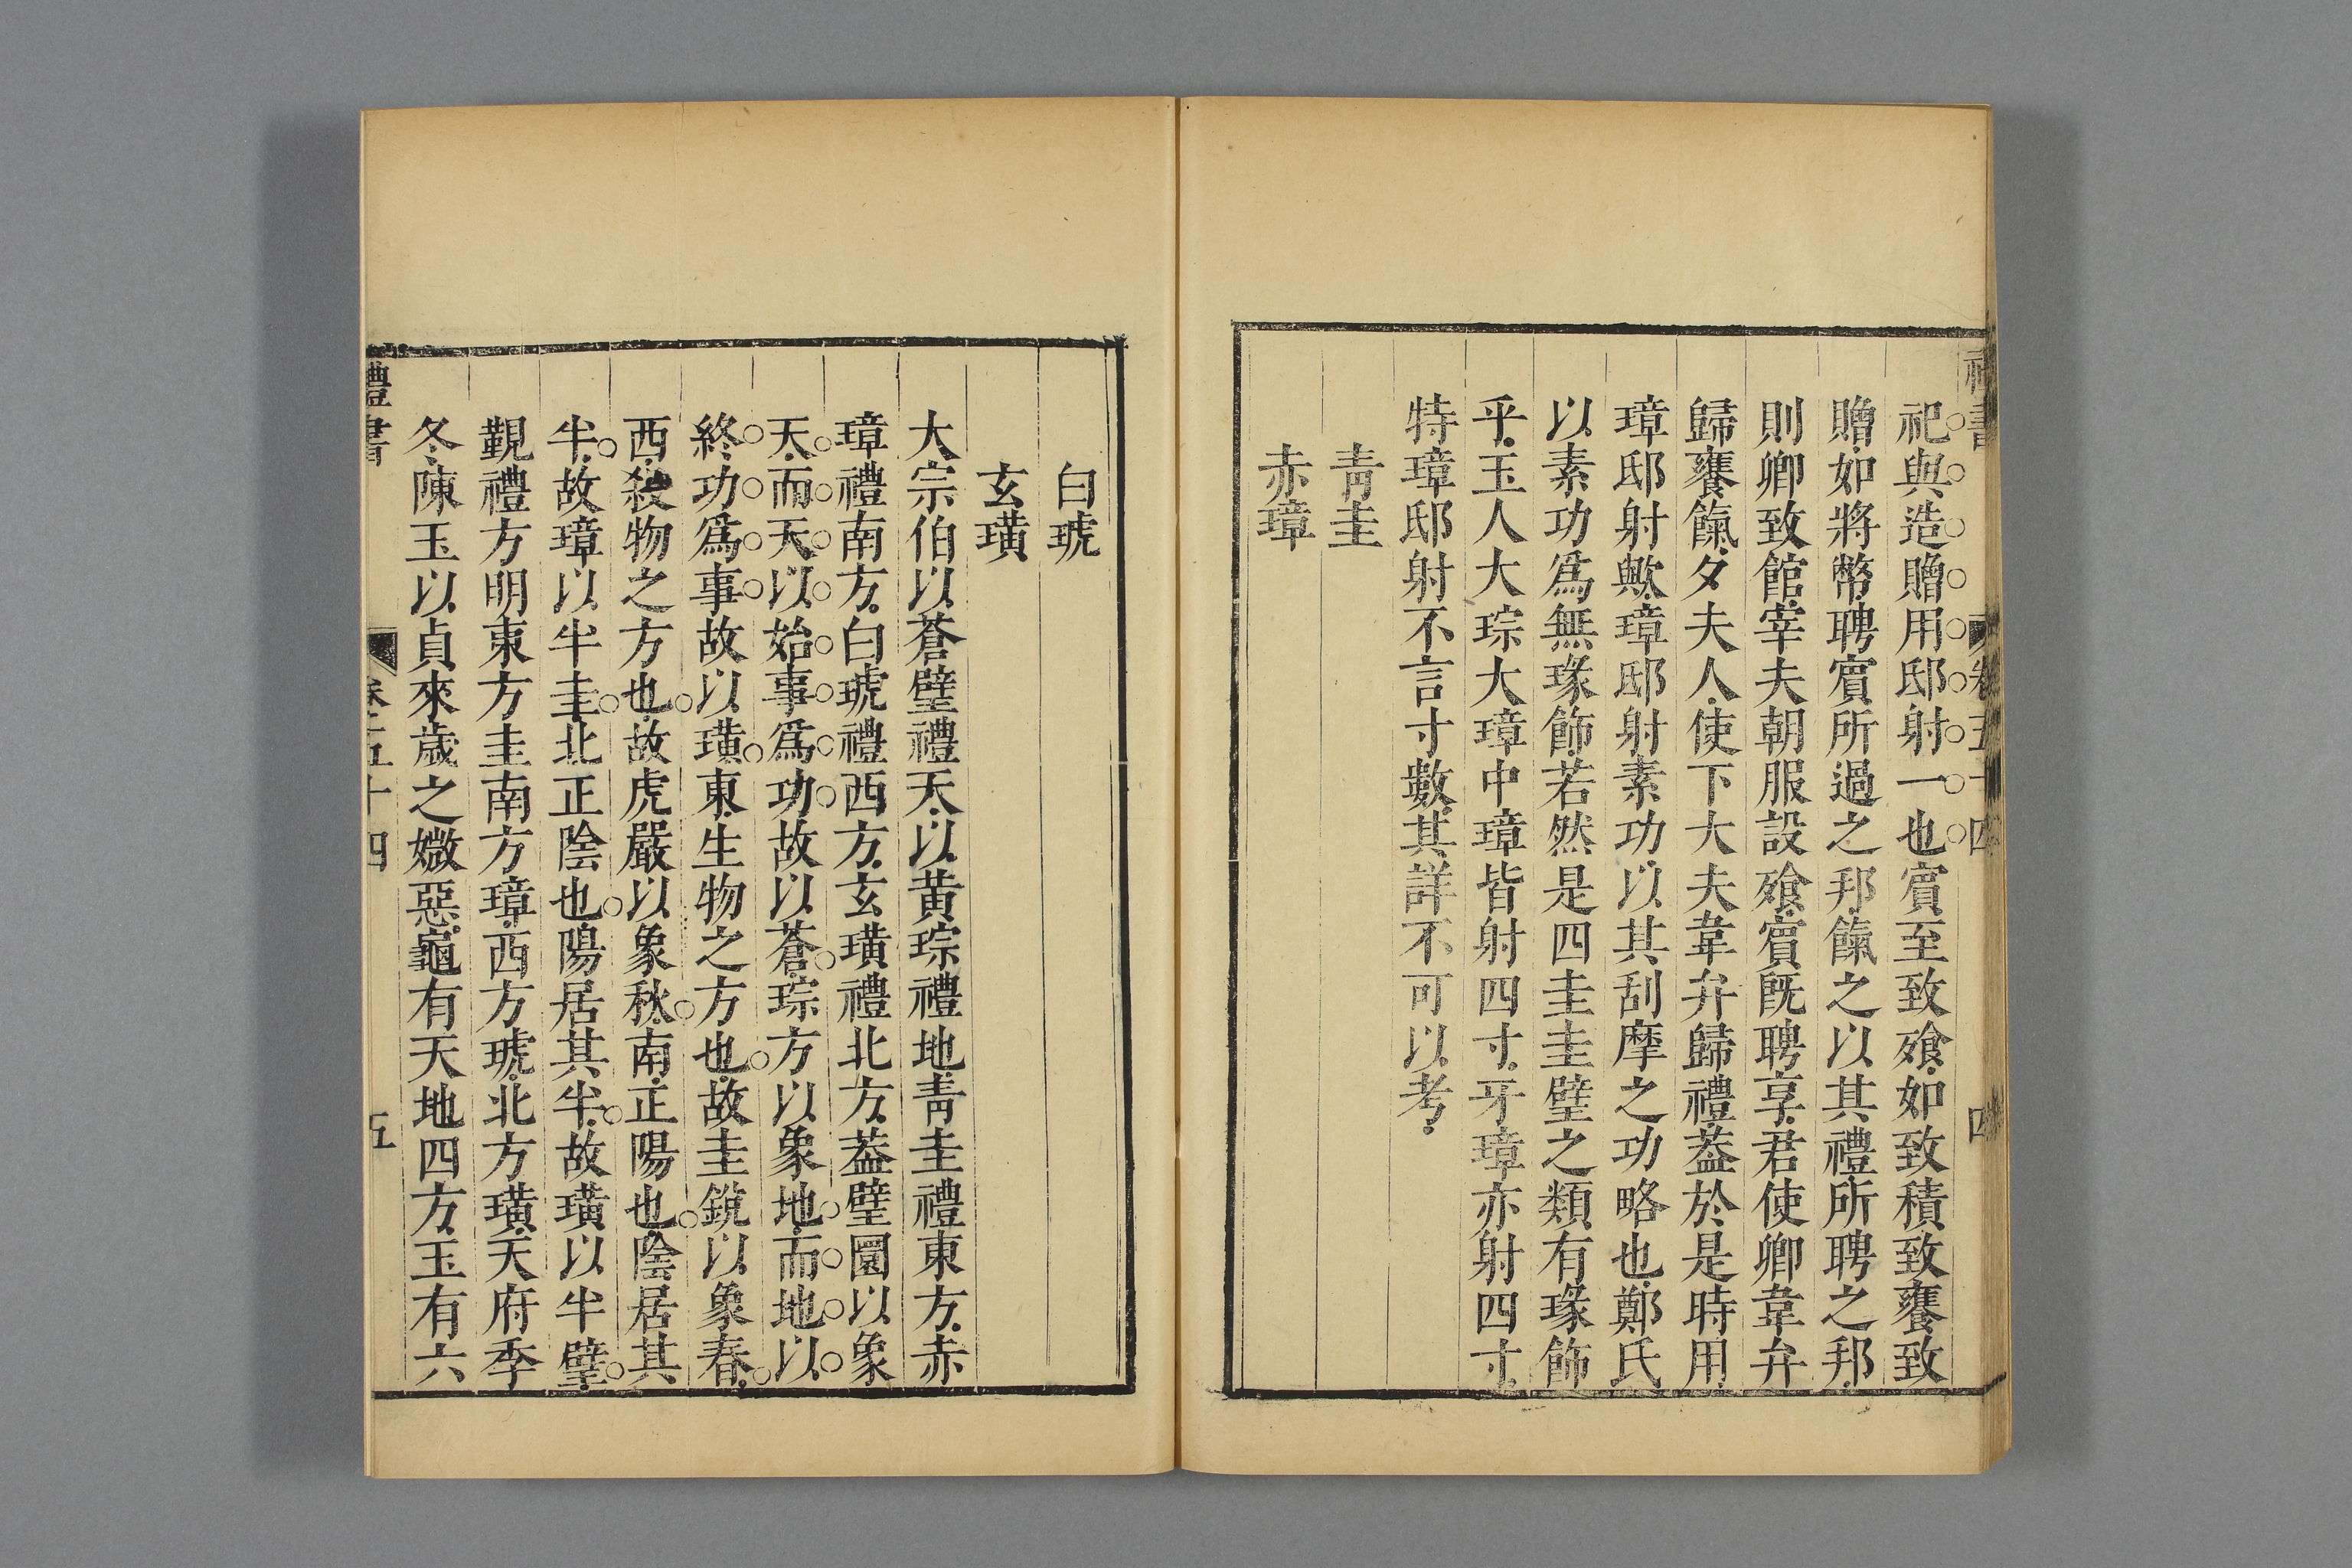 祀與造贈用邸射一也賓至致飱如致積致饔致
贈如將幣聘賓所過之邦餼之以其禮所聘之邦
則卿致館宰夫朝服設飱賓旣聘享君使卿韋弁
歸饔餼夕夫人使下大夫韋弁歸禮葢於是時用
璋邸射歟璋邸射素功以其刮摩之功略也鄭氏
以素功爲無瑑飾若然是四圭圭璧之類有瑑飾
乎玉人大琮大璋中璋皆射四寸牙璋亦射四寸
特璋邸射不言寸數其詳不可以考
靑圭
赤璋
白琥
玄璜
大宗伯以蒼璧禮天以黃琮禮地靑圭禮東方赤
璋禮南方白琥禮西方玄璜禮北方葢璧圜以象
天而天以始事爲功故以蒼琮方以象地而地以
終功爲事故以璜東生物之方也故圭銳以象春
西殺物之方也故虎嚴以象秋南正陽也陰居其
半故璋以半圭北正陰也陽居其半故璜以半璧
覲禮方明東方圭南方璋西方琥北方璜天府季
冬陳玉以貞來歲之媺惡龜有天地四方玉有六
禮書
卷五十四
五